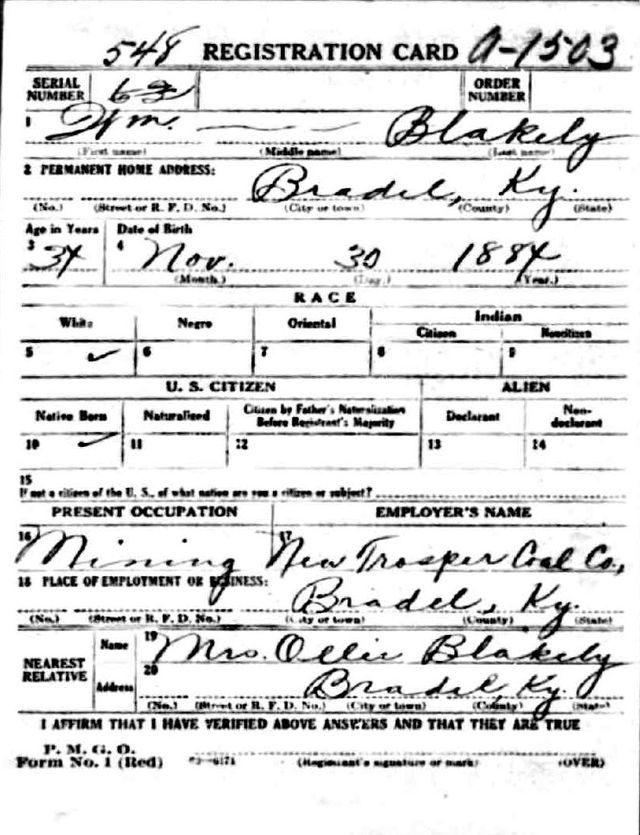 548 REGISTRATION CARD A-1503
SERIAL NUMBER 63 ORDER NUMBER
1 Wm. — — Blakely
(First name) (Middle name) (Last name)
2 PERMANENT HOME ADDRESS:
Bradel, Ky.
(No.) (Street or R. F. D. No.) (City or town) (County) (State)
Age in Years Date of Birth
3 34 4 Nov. 30 1884
(Month.) (Day.) (Year.)
RACE
White Negro Oriental Indian
Citizen Noncitizen
5 ✓ 6 7 8 9
U. S. CITIZEN ALIEN
Native Born Naturalized Citizen by Father's Naturalization Before Registrant's Majority Declarant Non-declarant
10 ✓ 11 12 13 14
15
If not a citizen of the U. S., of what nation are you a citizen or subject?
PRESENT OCCUPATION EMPLOYER'S NAME
16 Mining 17 New Trosper Coal Co,
18 PLACE OF EMPLOYMENT OR BUSINESS:
Bradel, Ky.
(No.) (Street or R. F. D. No.) (City or town) (County) (State)
NEAREST RELATIVE Name 19 Mrs. Ollie Blakely
Address 20 Bradel, Ky.
(No.) (Street or R. F. D. No.) (City or town) (County) (State)
I AFFIRM THAT I HAVE VERIFIED ABOVE ANSWERS AND THAT THEY ARE TRUE
P. M. G. O.
Form No. 1 (Red) (Registrant's signature or mark) (OVER)